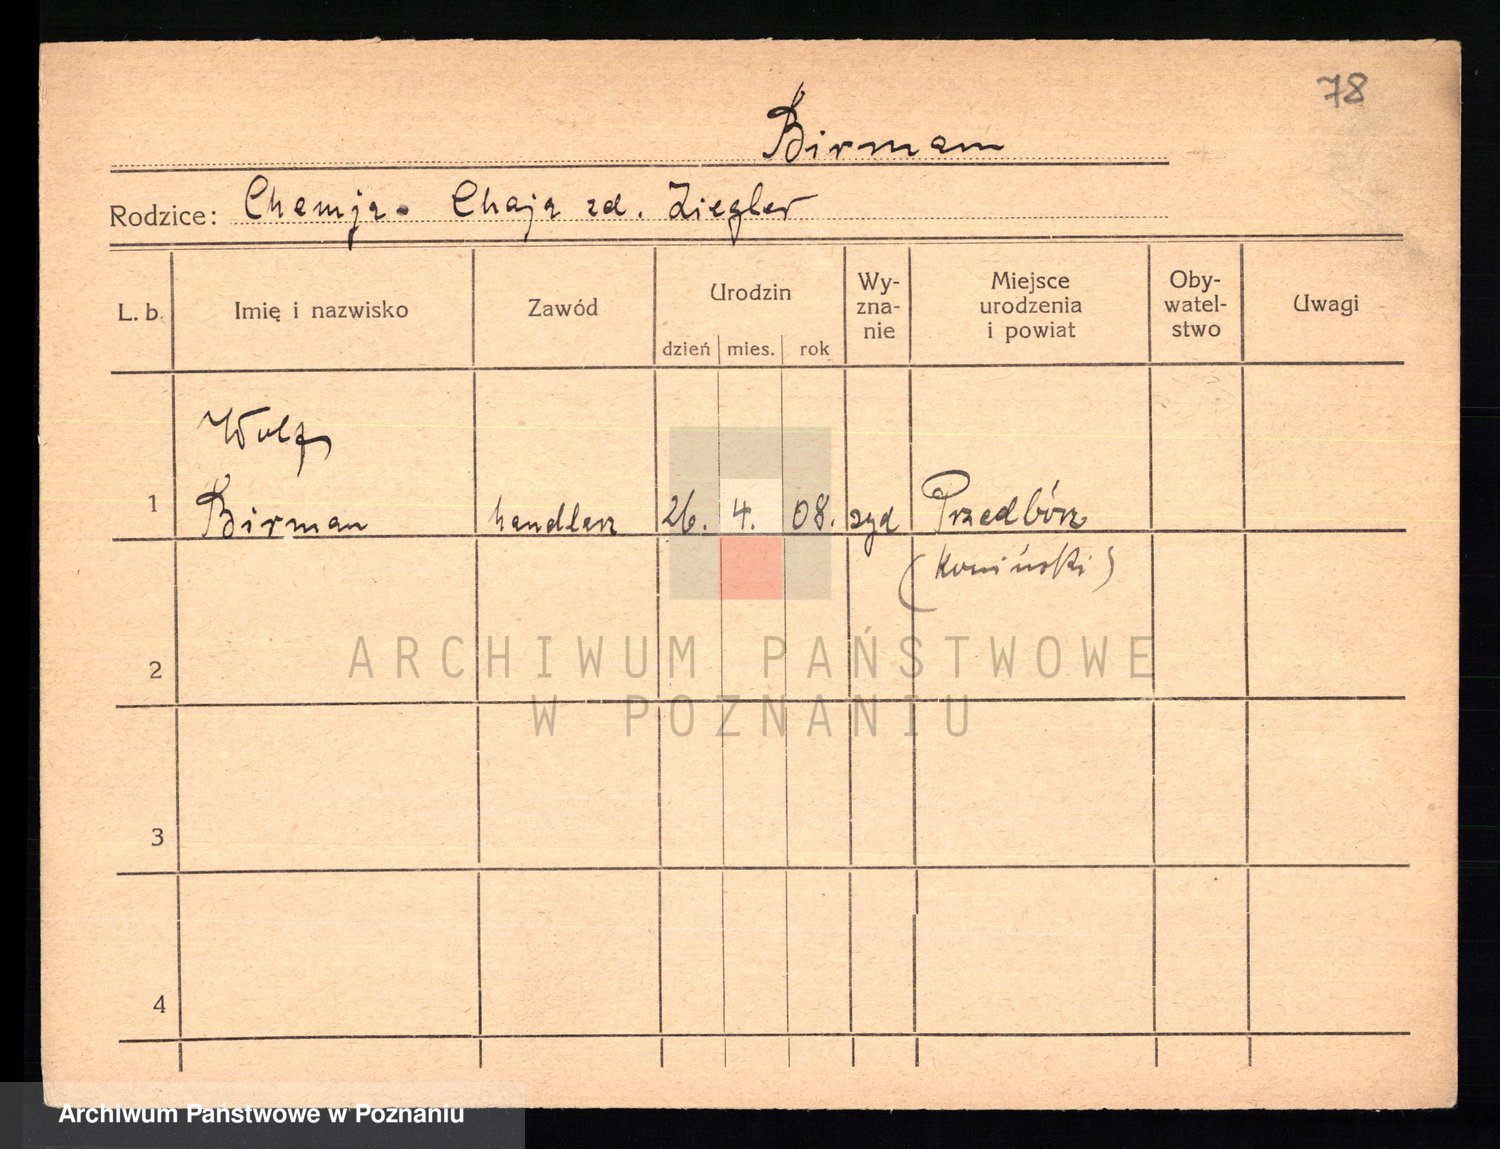 78
Birmam
Rodzice: Chemja. Chaja zd. Ziegler
L. b. Imię i nazwisko Zawód Urodzin Wy- zna- nie Miejsce urodzenia i powiat Oby- watel- stwo Uwagi
dzień mies. rok
Wolf
1 Birman handlarz 26. 4. 08. żyd Przedbórz
(Koniński)
2
3
4
ARCHIWUM PAŃSTWOWE
W POZNANIU
Archiwum Państwowe w Poznaniu